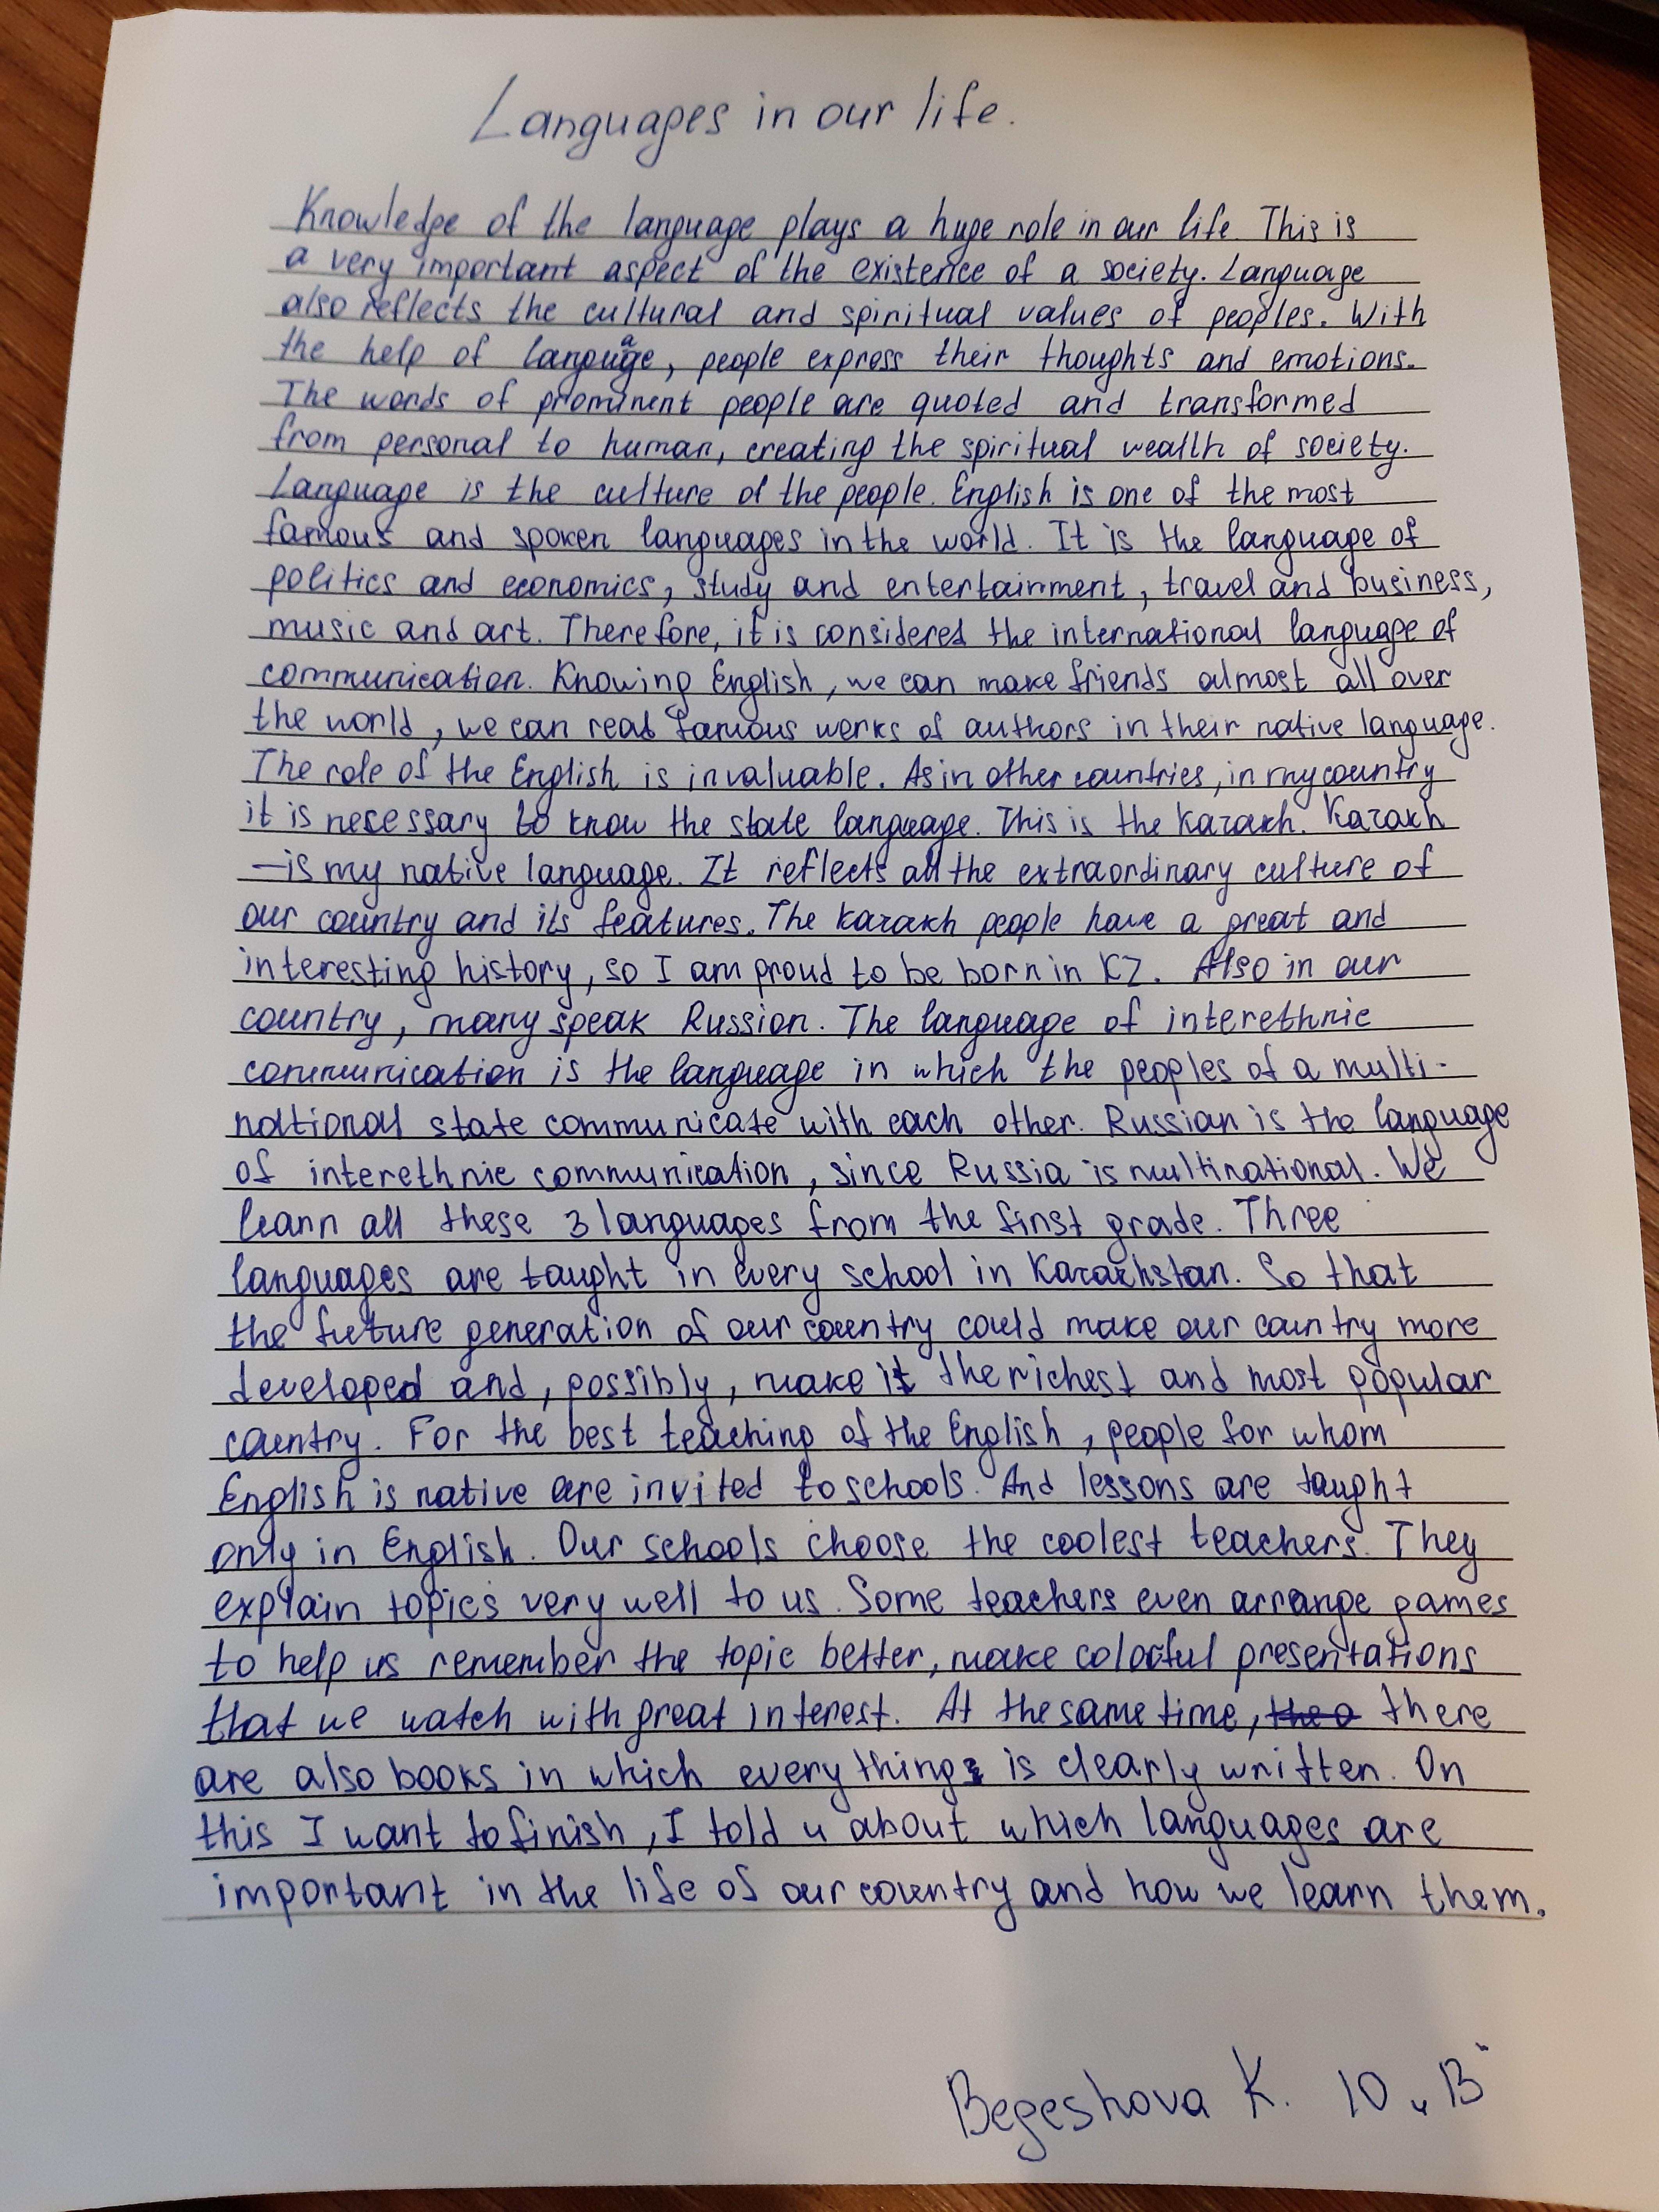 Languages in our life.
Knowledge of the language plays a huge role in our life. This is
a very important aspect of the existence of a society. Language
also reflects the cultural and spiritual values of peoples. With
the help of language, people express their thoughts and emotions.
The words of prominent people are quoted and transformed
from personal to human, creating the spiritual wealth of society.
Language is the culture of the people. English is one of the most
famous and spoken languages in the world. It is the language of
politics and economics, study and entertainment, travel and business,
music and art. Therefore, it is considered the international language of
communication. Knowing English, we can make friends almost all over
the world, we can read famous works of authors in their native language.
The role of the English is invaluable. As in other countries, in my country
it is necessary to know the state language. This is the Kazakh. Kazakh
– is my native language. It reflects all the extraordinary culture of
our country and its features. The kazakh people have a great and
interesting history, so I am proud to be born in KZ. Also in our
country, many speak Russion. The language of interethnic
communication is the language in which the peoples of a multi-
national state communicate with each other. Russian is the language
of interethnic communication, since Russia is multinational. We
learn all these 3 languages from the first grade. Three
languages are taught in every school in Kazakhstan. So that
the future generation of our country could make our country more
developed and, possibly, make it the richest and most popular
country. For the best teaching of the English, people for whom
English is native are invited to schools. And lessons are taught
only in English. Our schools choose the coolest teachers. They
explain topics very well to us. Some teachers even arrange games
to help us remember the topic better, make colorful presentations
that we watch with great interest. At the same time, there
are also books in which everything is clearly written. On
this I want to finish, I told u about which languages are
important in the life of our country and how we learn them.
Begeshova K. 10 „B"